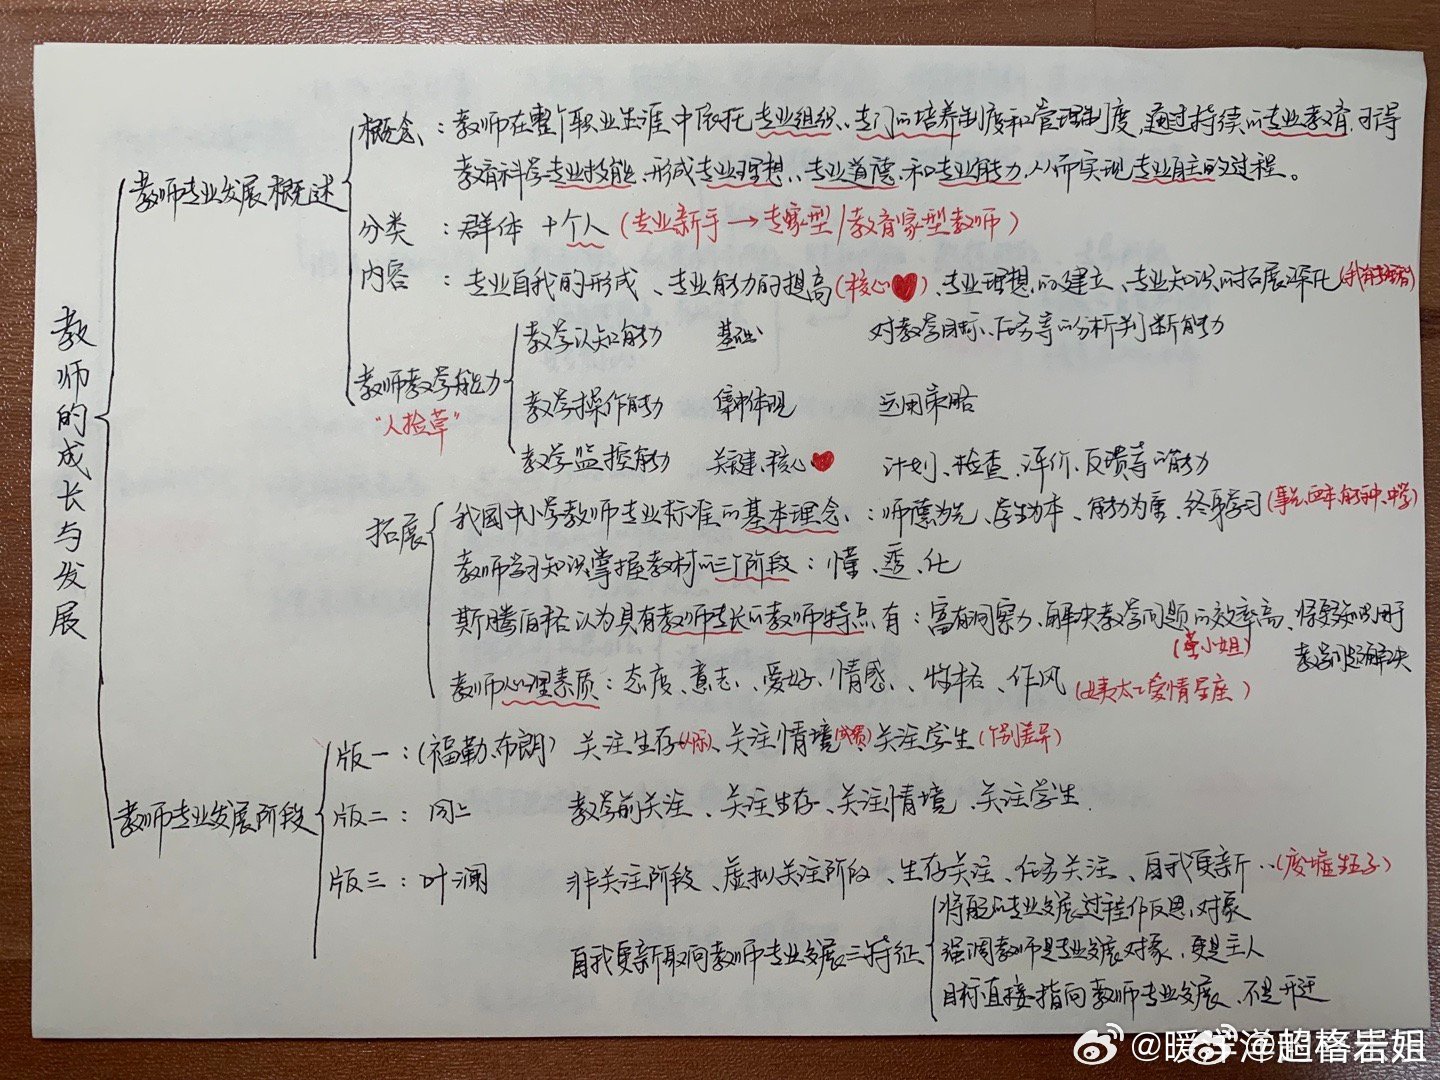 教师的成长与发展
教师专业发展概述
概念：教师在整个职业生涯中依托专业组织、专门的培养制度和管理制度，通过持续的专业教育，习得
教育科学专业技能、形成专业理想、专业道德、和专业能力，从而实现专业自主的过程。
分类：群体+个人（专业新手→专家型/教育家型教师）
内容：专业自我的形成、专业能力的提高（核心❤）、专业理想的建立、专业知识的拓展深化
教师教学能力
"人捡草"
教学认知能力 基础 对教学目标、任务等的分析判断能力
教学操作能力 集中体现 运用策略
教学监控能力 关键、核心❤ 计划、检查、评价、反馈等的能力
拓展
我国中小学教师专业标准的基本理念：师德为先、学生为本、能力为重、终身学习
教师学习知识、掌握教材的三个阶段：懂、透、化
斯腾伯格认为具有教师专长的教师特点有：富有洞察力、解决教学问题的效率高、将知识用于
教学问题解决
教师心理素质：态度、意志、爱好、情感、性格、作风（姨太太爱情星座）
教师专业发展阶段
版一：（福勒、布朗） 关注生存（人际）、关注情境（成绩）、关注学生（个别差异）
版二：同上 教学前关注、关注生存、关注情境、关注学生.
版三：叶澜 非关注阶段、虚拟关注阶段、生存关注、任务关注、自我更新
自我更新取向教师专业发展三特征
将自己的专业发展过程作反思对象
强调教师是专业发展对象、更是主人
目标直接指向教师专业发展、不是升迁
@超格岩姐